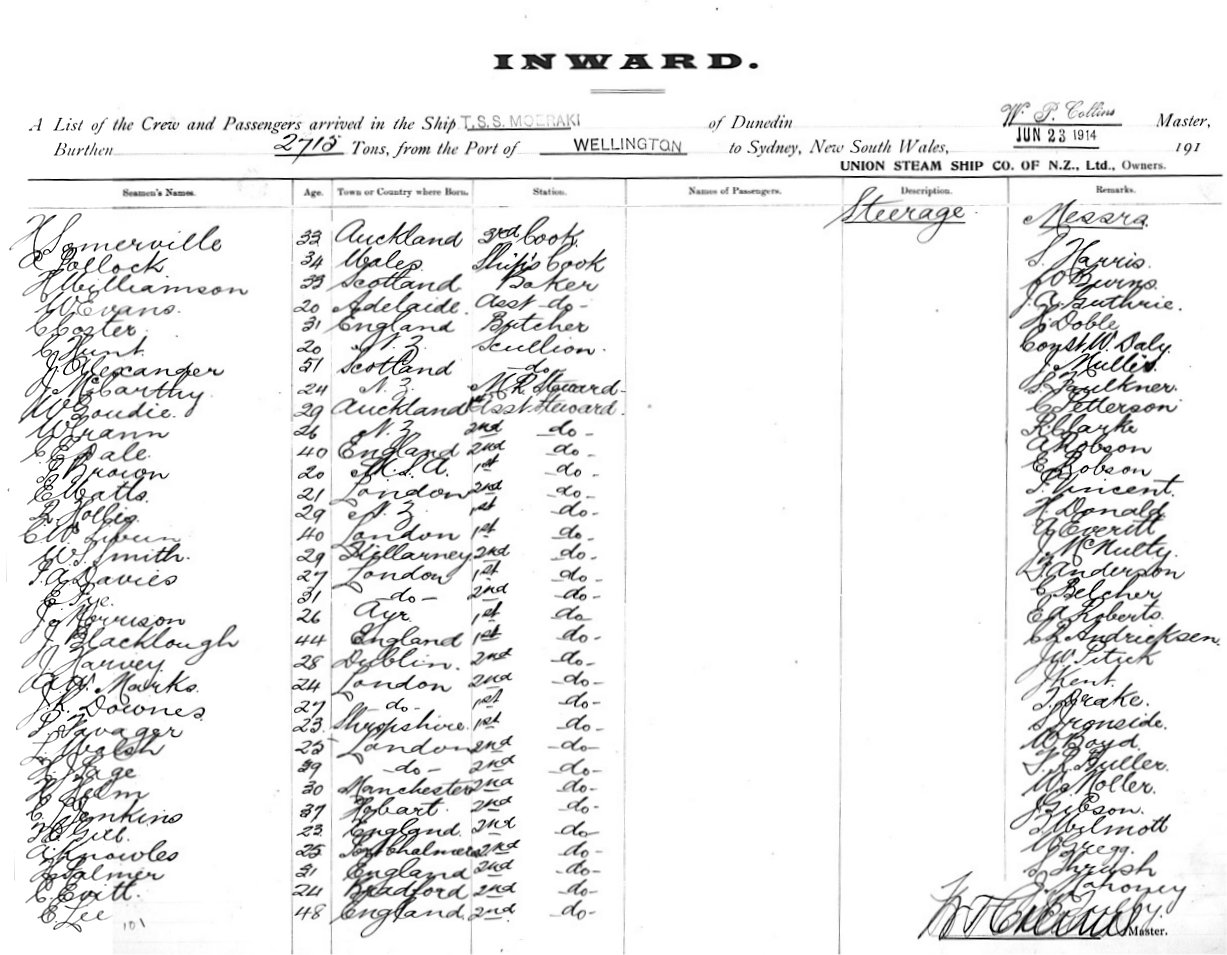 INWARD.
A List of the Crew and Passengers arrived in the Ship T.S.S. MOERAKI of Dunedin W. P. Collins Master,
Burthen 2715 Tons, from the Port of WELLINGTON to Sydney, New South Wales, JUN 23 1914 191
UNION STEAM SHIP CO. OF N.Z., Ltd., Owners.
Seamen's Names. Age. Town or Country where Born. Station. Names of Passengers. Description. Remarks.
Steerage Messrs
H Somerville 33 Auckland 3rd Cook
Pollock 34 Wales Ship's Cook S. Harris.
H Williamson 33 Scotland Baker Burns.
W Evans. 20 Adelaide. Asst -do- J. G. Guthrie.
C Coster. 31 England Butcher Doble
C Hunt. 20 N.Z. Scullion. Const W. Daly.
J Alexander 51 Scotland -do- J Mullis.
J McCarthy. 24 N.Z. M.R. Steward- S Faulkner.
W Goudie. 29 Auckland Asst Steward. C Petterson
W Crann 26 N.Z. 2nd -do- R Clarke
C E Dale. 40 England 2nd -do- A Robson
Brown 20 U.S.A. 1st -do- E Robson
E Watts. 21 London 2nd -do- Vincent.
Hollis 29 N.Z. 1st -do- H Donald
40 London 1st -do- A Everitt
W S Smith. 29 Killarney 2nd -do- J McNulty.
A Davies 27 London 1st -do- Anderson
C Tye. 31 -do- 2nd -do- C Belcher
J Morrison 26 Ayr. 1st do Ed Roberts.
J Blacklough 44 England 1st -do- Andricksen.
J Harvey 28 Dublin. 2nd -do- J W Pitick
A W. Marks. 24 London 2nd -do- J Kent.
J R. Downes 27 -do- 1st -do- Drake.
Savager 23 Shropshire. 1st -do- S Ironside.
Walsh 25 London 2nd -do- W Boyd.
Page 39 -do- 2nd -do- Buller.
H Helm 30 Manchester 2nd -do- W. Moller.
C Jenkins 37 Hobart. 2nd -do- J Gibson.
Gill. 23 England. 2nd -do- Wilmott
A Knowles 25 Port Chalmers 2nd -do- W Gregg.
Palmer 31 England 2nd -do- S Thrush
C Evitt. 24 Bradford 2nd -do- Mahoney
C Lee 48 England. 2nd -do-
101 Master.